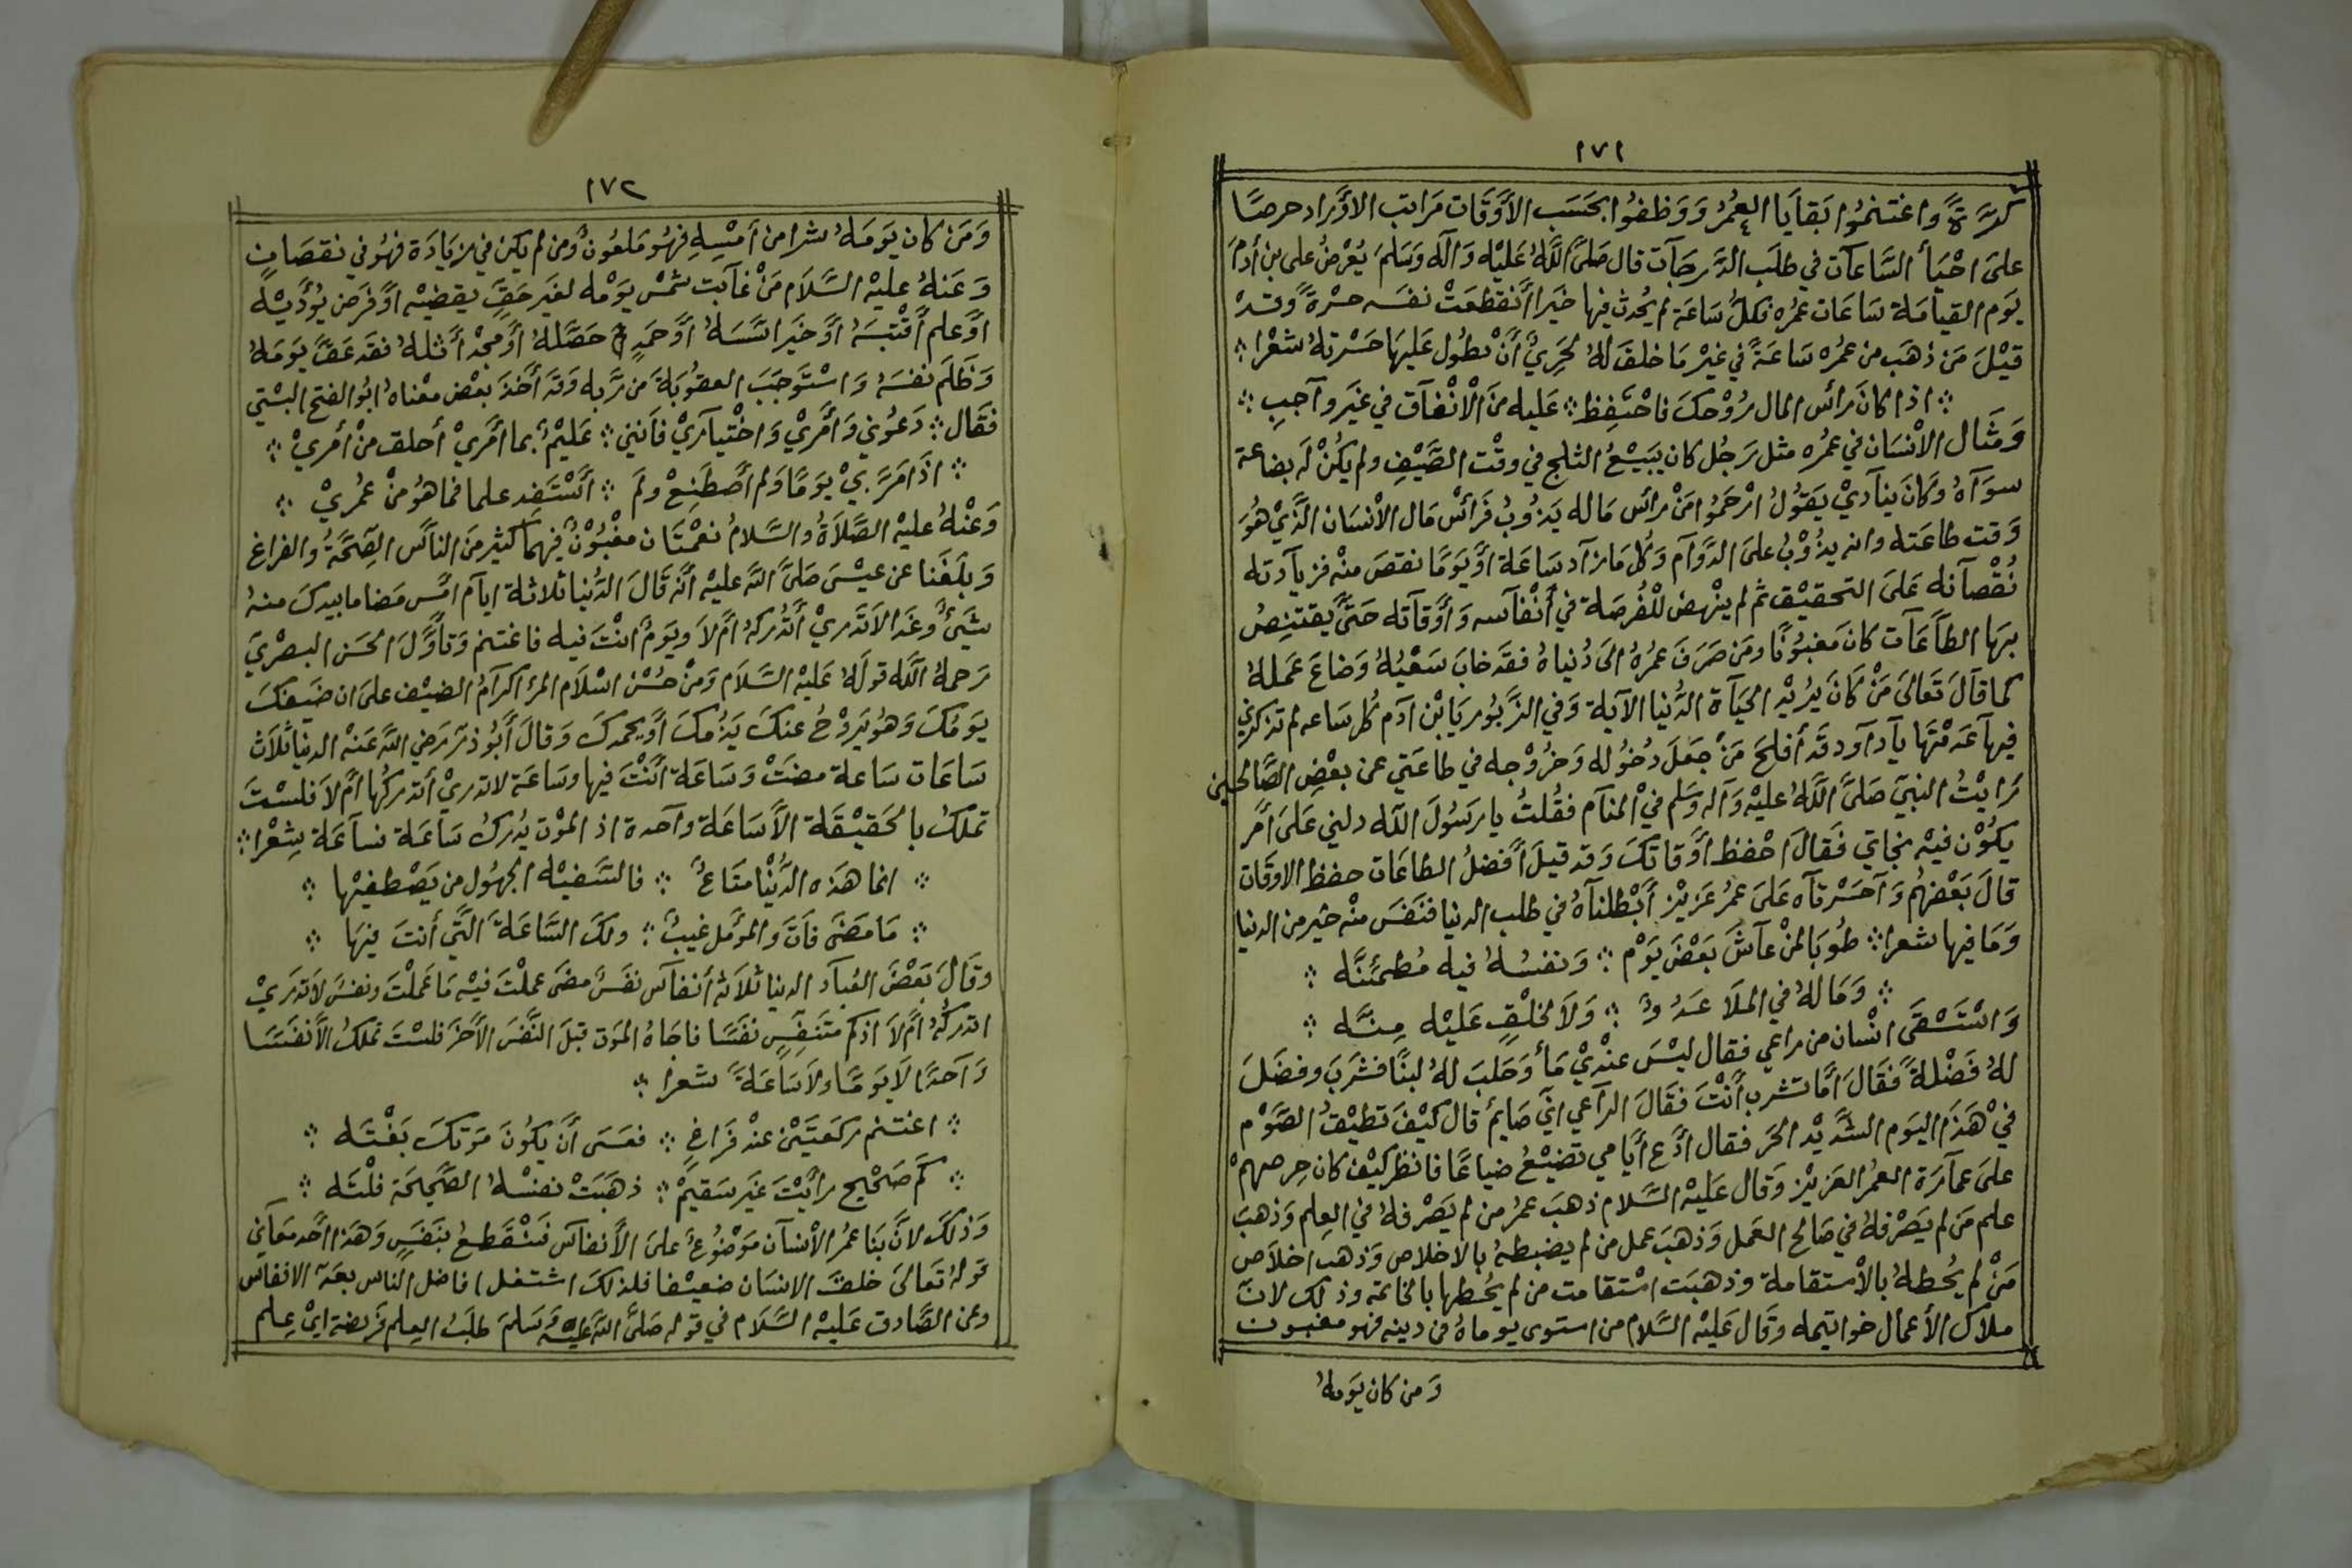 ١٧١
كرَّةً واغتنمُوا بَقايَا العُمُرْ وَوَظفوُا بحَسَب الأَوقَات مَراتب الاوْراد حرصًا
علىَ احْيَأ السَّاعاَت في طلَب الدَّرجَات قال صَلىَّ اللَّهُ عَليْه وَآله وَسَلمَ يُعْرضُ على بن أدمَ
يوَم القيامَة سَاعَات عمُره فكلُّ سَاعَة لم يُحدث فيها خَيَرا أنقطعَتْ نفسَه حسْرةً وقدْ
قيْلَ مَن ذهَب من عمُره سَاعَةً في غيْر مَا خلقَ لهُ لحَرِيٌّ أنْ يطُول عَليهَا حَسْرتهُ شعْرا
اذا كانَ رأس المال رُوْحكَ فاحْتَفِظ عَليه منَ الْانْفاَق في غيَر وآجبِ
وَمثَال الاْنسَان في عمُره مثل رَجُل كان يبَيْعُ الثلج في وقْت الصَّيْفِ ولم يكُنْ لَه بضاعة
سوَآهُ وكَانَ ينآديْ يقوُلُ ارْحَموُا مَنْ رأس مَاله يَذوُبُ فرَأسْ مَال الاْنسَان الَّذيْ هُوَ
وَقت طاعَته وانه يذوُبُ علىَ الدَّوآم وَكُل مَا زآد سَاعَة اوْ يَومًا نقصَ منْه فزيآدته
نُقْصآنه عَلىَ التحقيْق ثم لم ينْهض للْفُرصَة في أنْفآسه وَأوْقآته حَتىَّ يقتنِصُ
بهَا الطَآعَآت كانَ مَغبوُنًا ومَن صَرَفَ عمُرهُ الىَ دُنياهُ فقدَ خابَ سَعْيُهُ وَضاعَ عَملهُ
كما قآلَ تَعَالىَ مَنْ كَانَ يرُيْد الحَيَآة الدُّنيا الآية وَفي الزَّبوُر يَا بْن آدَم كُل ساعه لم تذكرني
فيهاَ عَدمْتَهَا يآ دآود قَد أفلحَ مَنْ جَعلَ دخوُله وَخروُجه في طاعَتي عن بعْضِ الصَّالحين
رَايْتُ النبيَّ صَلىَّ اللَّهُ عليْه وَآله وَسَلم فيْ المنآم فقُلتُ يا رَسوُلَ اللَّه دلني عَلىَ امْر
يكوُن فيْه نجاتي فَقالَ احْفظ أوْقاتكَ وَقد قيلَ أفضلُ الطاعَات حفظ الاوقات
قالَ بَعْضهُم وَآحَسْرتآه عَلىَ عمُرٍ عَزيْز أبْطلنآهُ في طلب الدنيا فنَفسَ منْه خير من الدنيا
وَمَا فيها شعرا طوُبَا لمنْ عآشَ بَعْضَ يوَمْ وَنفسُهُ فيه مُطمئنَّه
وَمَا لهُ في الملَا عَدُوٌّ وَلَا لخلْقٍ عَليْه مِنَّه
وَاسْتَسْقَى انْسان من راعي فقال ليْسَ عنْديْ مَأ وَحَلبَ لهُ لبنًا فشَربَ وفضَلَ
لهُ فَضْلةً فَقالَ أمَا تشرب أنْتَ فقَالَ الرآعي انيَّ صَايمٌ قال كيْفَ تطيْقُ الصَّوْم
فيْ هَذَا اليَوم الشَّديْد الحَر فقال ادَع أيَامي تَضيْعُ ضياعًا فانظر كيْف كان حِرصهمْ
علىَ عمآرَة العمُر العَزيْز وَقال عَليْه السَّلام ذهبَ عمُر من لم يَصْرفهُ في العِلم وَذهبَ
علم مَن لم يَصْرفهُ في صَالح العَمل وَذهَبَ عمل من لم يضبطهُ بالاخلاص وَذهب اخلاص
مَنْ لم يحُطهُ بالاْستقامة وذهبَت اسْتقامت من لم يحُطها بالخاتمه وذلك لانَّ
ملاك الأعمال خواتيمه وقَال عَليْه السَّلام من استوى يوماهُ في دينه فهو مغبون
وَمن كان يَومهُ
١٧٢
وَمَن كان يَومَهُ شرا من أمْسِهِ فهُو مَلعوُنٌ ومن لم يكن في زيَادَة فهُو في نقصَان
وَعَنهُ عليْه السَّلَام مَنْ غآبَت شمْس يَوْمه لغيَر حَقٍّ يقضيْه أوْ فَرض يُؤَدّيْه
اوْ علم أقْتبَسَهُ اوْ خيَر اسَّسَهُ اوْ حَمدٍ حَصَّلهُ اوْ مجْد أثلهُ فقَد عَقَّ يَومَهُ
وَظَلَم نفسَهُ وَاسْتَوجَبَ العقوُبَةَ مَن رَّبه وَقدَ أخَذَ بعْض معْناهُ ابوُ الفتح البسْتي
فقَال دَعوُني وَأمْريْ وَاخْتيآريْ فاَنني عَليْمٌ بما أمْريْ أحلق منْ أمريْ
اذَا مَرَّ بيْ يَومًا وَلم أصْطَنِعْ ولَم أسْتَفِد علما فما هوُ منْ عمُريْ
وَعنْهُ عليْه الصَّلَاةُ والسَّلامُ نعْمتَان مغْبوُنٌ فيْهما كثير منَ الناَس الصّحَّةُ والفراغ
وَبلَغَنا عن عيْسىَ صَلىَّ اللَّه عليْه أنَّه قَالَ الدُّنيا ثلاثة ايآم امْس مَضا ما بيدكَ منهُ
شَيئٌ وغَدَ الاَتَدريْ أتُدْركهُ امْ لَا ويَومٌ انْتَ فيه فاغتنم وَتأوَّلَ الحسَن البصْريّ
رَحمهُ اللَّه قولَهُ عَليْه السَّلاَم وَمنْ حُسْن اسْلَام المرْ اكرَآمُ الضيْف علىَ ان ضَيفكَ
يَومُكَ وَهوُ يَروْحُ عنكَ يَذُمكَ أوْ يحمدكَ وَقالَ أبوُ ذر رَضي اللَّه عَنْه الدنيا ثلاَث
سَاعَات ساعة مضَتْ وَسَاعَة أنْتَ فيها وسَاعَة لا تدريْ أتدركُها امْ لَا فلسْتَ
تملكُ بالحَقيْقَة الاَّ سَاعَة وآحدة اذ الموْت يُدركُ سَاعَة فسآعَة شِعْرا
انما هَذه الدُّنْيا متَاعٌ فالسَّفيْه الجهوُل من يَصْطفيْها
مَا مَضَى فاتَ والموَمل غَيبٌ ولكَ السَّاعَةَ الَّتي أنتَ فيهَا
وقَالَ بَعْضَ العُبآد الدنيا ثلاَثة أنفآس نفَسٌ مضىَ عملْتَ فيْه مَا عَملْتَ ونفسٌ لاَتدَريْ
اتدركُهُ امْ لَا اذ كم متَنَفِسٍ نفَسًا فاجَاهُ الموَت قبلَ النَّفسَ الاْخَر فلسْتَ تملكُ الاَّ نفسَا
وَآحدًا لَا يَومًا ولَا سَاعَةً شعرا
اغتنم ركعَتيْن عنْد فَراغٍ فعسَى أنْ يكوُنَ مَوتكَ بَغْتَه
كَم صَحْيحٍ رأيْتَ غيَر سَقيْمٌ ذهَبَتْ نفسْهُ الصَّحيْحَة فلْتَه
وَذلكَ لانَّ بنَا عمُر الاْنسآن مَوْضوُعٌ علىَ الأنفآس فَتنْقَطعُ بنَفَسٍ وَهَذا احَد معَآني
قولهُ تَعالىَ خلقَ الانسَان ضعيْفا فلذلكَ اشتغل افاضل الناس بعَدّ الانفاس
وعن الصَّادق عَليْه السَّلَام في قوله صَلىَّ اللَّه عَليْه وَسَلمَ طلَبُ العِلم فَريضة ايْ عِلم